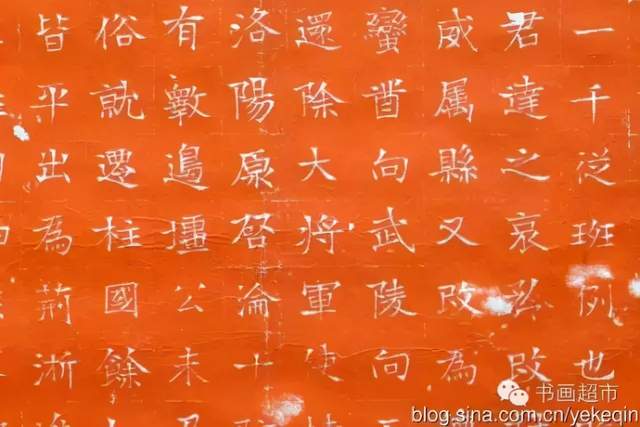 一千泛班例也
君達之哀改
威属縣又改為
蠻酋向武陵向
還除大将軍使
洛陽原啓淪十
有斁邉壃公未
俗就還柱國餘
皆平出為荊淅
书画超市
blog.sina.com.cn/yekeqin